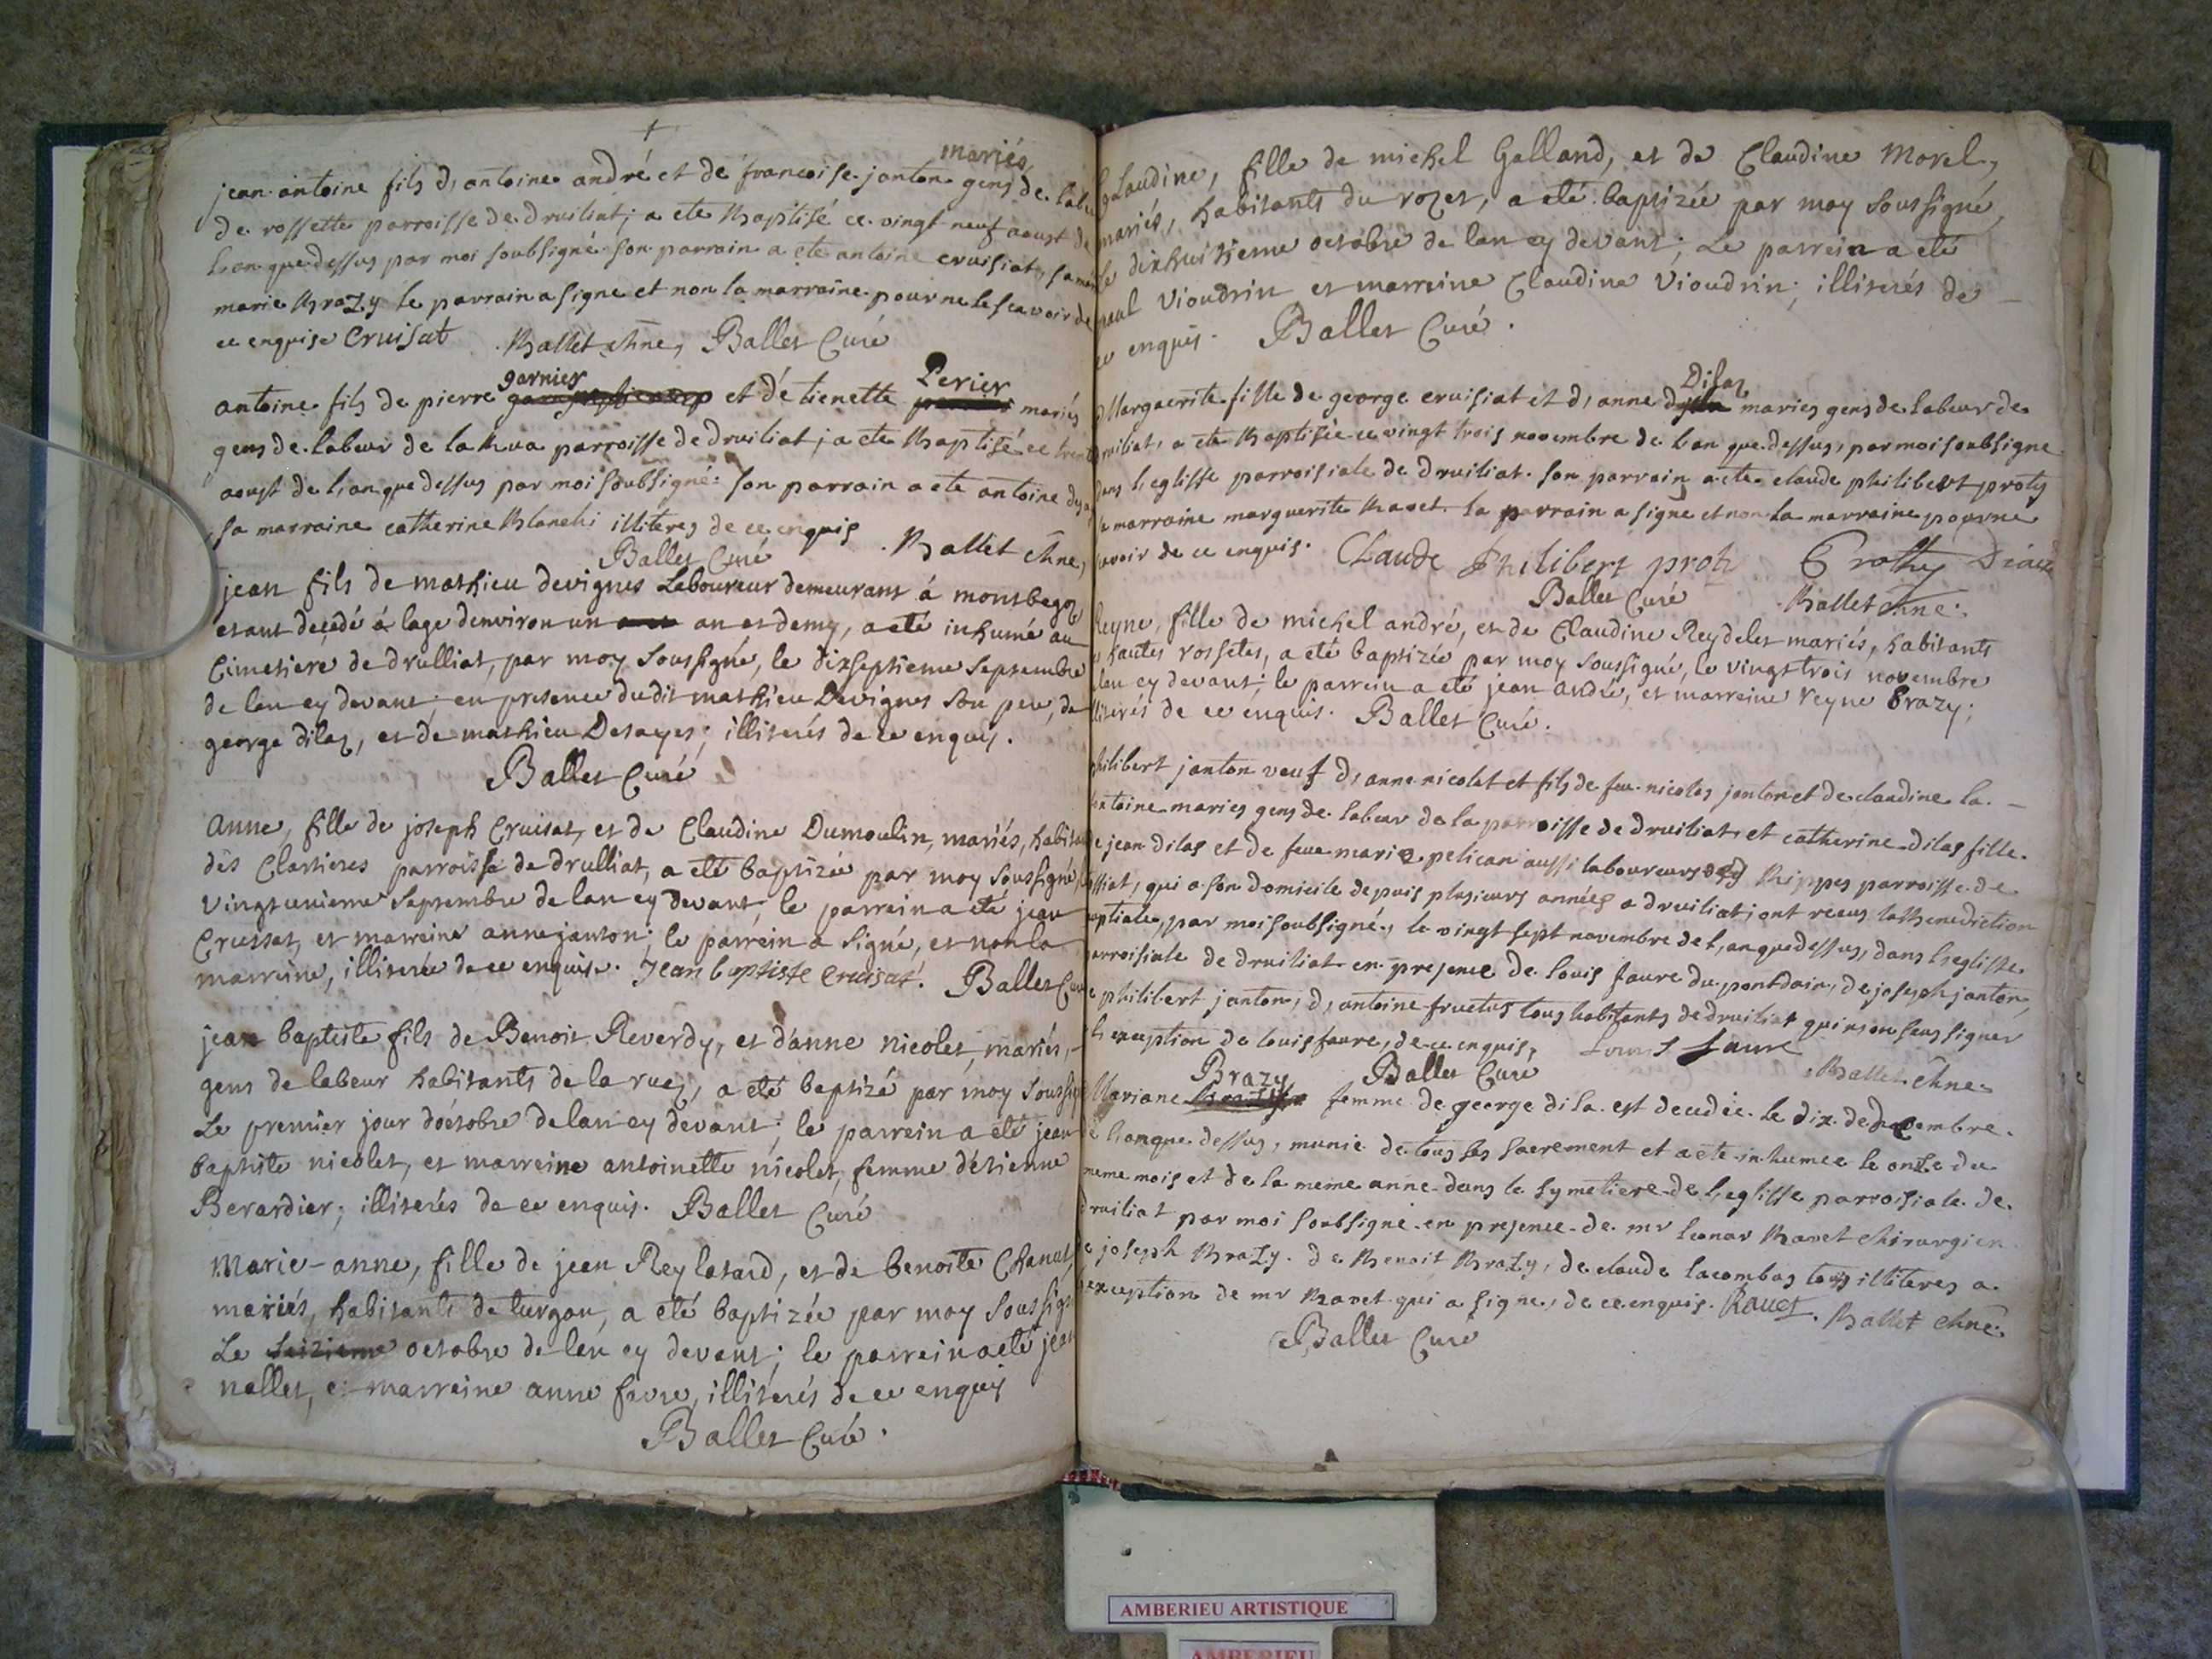 mariés
jean antoine fils d, antoine andré et de francoise janton gens de
de rossette parroisse de druiliat; a ete baptisé ce vingt neuf aoust de
l,an que dessus par moi soubsigné son parrain a ete antoine cruisiat, sa
marie brazy le parrain a signe et non la marraine pour ne le scavoir de
ce enquise Cruisat Ballet Curé
garnier Perier
antoine fils de pierre et d'étienette mariés
gens de labeur de la rua parroisse de druiliat; a ete baptisé ce
aoust de l,an que dessus par moi soubsigné: son parrain a ete antoine
sa marraine catherine blanchi illiteres de ce enquis Ballet
Ballet Curé
jean fils de mathieu devignes Laboureur demeurant á
etant decedé á lage denviron un an et demy, a eté inhumé au
Cimetiere de drulliat, par moy soussigné, le dixseptieme septembre
de lan cy devant, en presence dudit mathieu Devignes son pere, de
george dilaz, et de mathieu Desayes; illiterés de ce enquis.
Ballet Curé
Anne, fille de joseph Cruisat, et de Claudine Dumoulin, mariés,
des parroisse de drulliat, a eté baptizée par moy soussigné,
vingtunieme septembre de lan cy devant, le parrein a eté jean
et marreine anne janton; le parrein a signé, et non la
marreine, illiterée de ce enquise. Jean baptiste cruisat. Ballet
jean baptiste fils de Benoit Reverdy, et d'anne nicolet, mariés,
gens de labeur habitants de la ruaz, a eté baptizé par moy
Le premier jour doctobre de lan cy devant; le parrein a eté jean
baptiste nicolet, et marreine antoinette nicolet, femme d'étienne
Berardier; illiterés de ce enquis. Ballet Curé
Marie-anne, fille de jean Rey et de benoite
mariés, habitants de turgon, a eté baptizée par moy
Le seizieme octobre de lan cy devant; le parrein a eté
nallet, et marreine anne favre, illiterés de ce enquis
Ballet Curé.
Claudine, fille de michel Galland, et de Claudine Morel,
mariés, habitants du rozet, a eté baptizée par moy soussigné,
le dixhuitieme octobre de lan cy devant; Le parrein a eté
paul Vioudrin et marreine Claudine Vioudrin; illiterés de
ce enquis. Ballet Curé.
Dilaz
Marguerite fille de george cruisiat et d, anne maries gens de labeur de
druiliat, a ete baptisée ce vingt trois novembre de l,an que dessus, par moi soubsigne
dans l,eglisse parroisiale de druiliat. son parrain a ete claude philibert
la marraine marguerite ravet. la parrain a signe et non la marraine pour ne
savoir de ce enquis. Claude Philibert
Ballet Curé Ballet
Reyne, fille de michel andré, et de Claudine Reydelet mariés, habitants
hautes rossetes, a eté baptizée par moy soussigné, le vingt trois novembre
lan cy devant; le parrein a eté jean andré, et marreine reyne Brazy;
illiterés de ce enquis. Ballet Curé.
philibert janton veuf d, anne nicolet et fils de feu nicolas janton et de claudine la
fontaine maries gens de labeur de la parroisse de druiliat, et catherine dilas fille
de jean dilas et de feue marie pelican aussi laboureurs parroisse de
qui a son domicile depuis plusieurs années a druiliat; ont receus la benediction
nuptiale, par moi soubsigné, le vingt sept novembre de l,an que dessus, dans l,eglisse
parroisiale de druiliat en presence de louis faure du pontdain, de joseph janton,
de philibert janton, d, antoine fructus tous habitants de druiliat qui n,on seus signer
a l,exeption de louis faure, de ce enquis, Louis Faure
Brazy Ballet Curé Ballet
Mariane femme de george dila est decedée le dix de decembre
de l,an que dessus, munie de tous ses sacrement et a ete inhumee le onze du
meme mois et de la meme anne dans le symetiere de l,eglisse parroisiale de
druiliat par moi soubsigné en presence de mr leonar ravet chirurgien
de joseph brazy, de benoit brazy, de claude lacombas tous illiteres a
l,exeption de mr ravet qui a signe, de ce enquis. Ravet. Ballet
Ballet Curé
AMBERIEU ARTISTIQUE
AMBERIEU